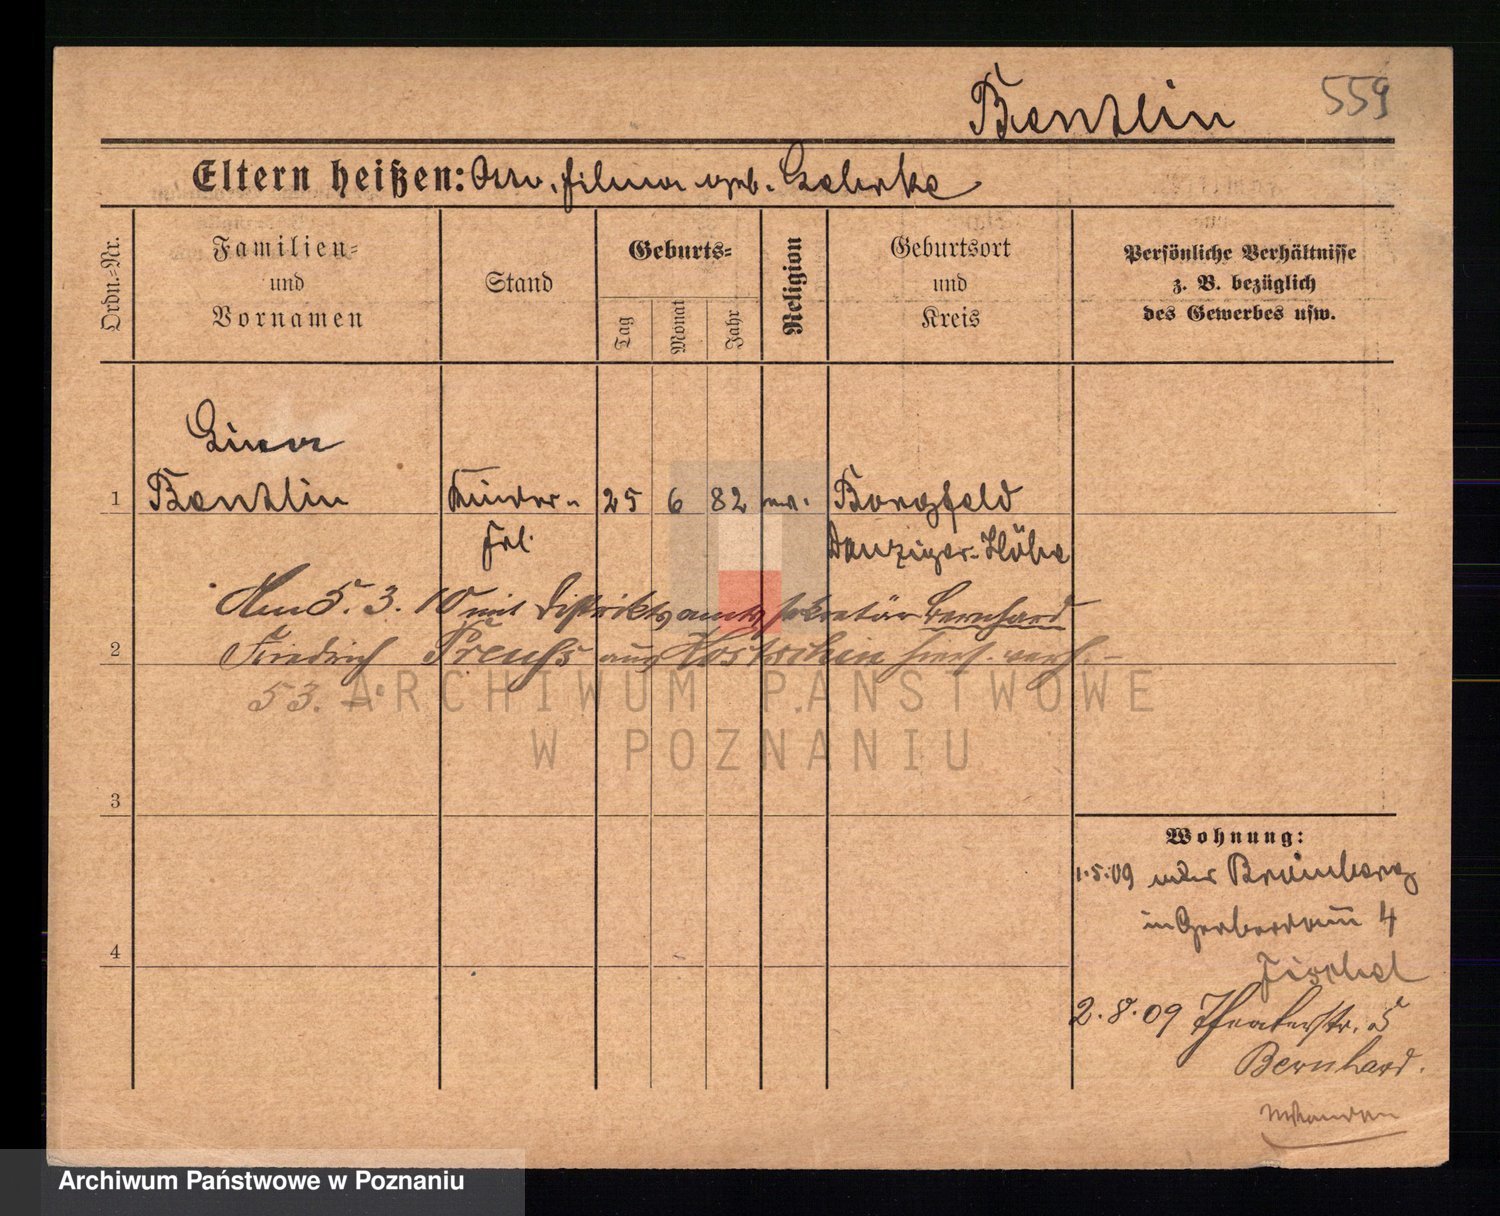 559
Bentlin
Eltern heißen: geb. Gehrke
Ordn.-Nr.
Familien-
und
Vornamen
Stand
Geburts-
Tag
Monat
Jahr
Religion
Geburtsort
und
Kreis
Persönliche Verhältnisse
z. B. bezüglich
des Gewerbes usw.
Lina
1 Bentlin Kinder- 25 6 82 ev. Borgfeld
frl. Danziger-Höhe
Am 5. 3. 10 mit Distriktsamtssekretär Bernhard
2 Friedrich Preuß aus Kostschin hier verh.
53.
ARCHIWUM PAŃSTWOWE
W POZNANIU
3
4
Wohnung:
1.5.09 Bromberg
4
2.8.09 Theaterstr. 5
Bernhard.
Archiwum Państwowe w Poznaniu